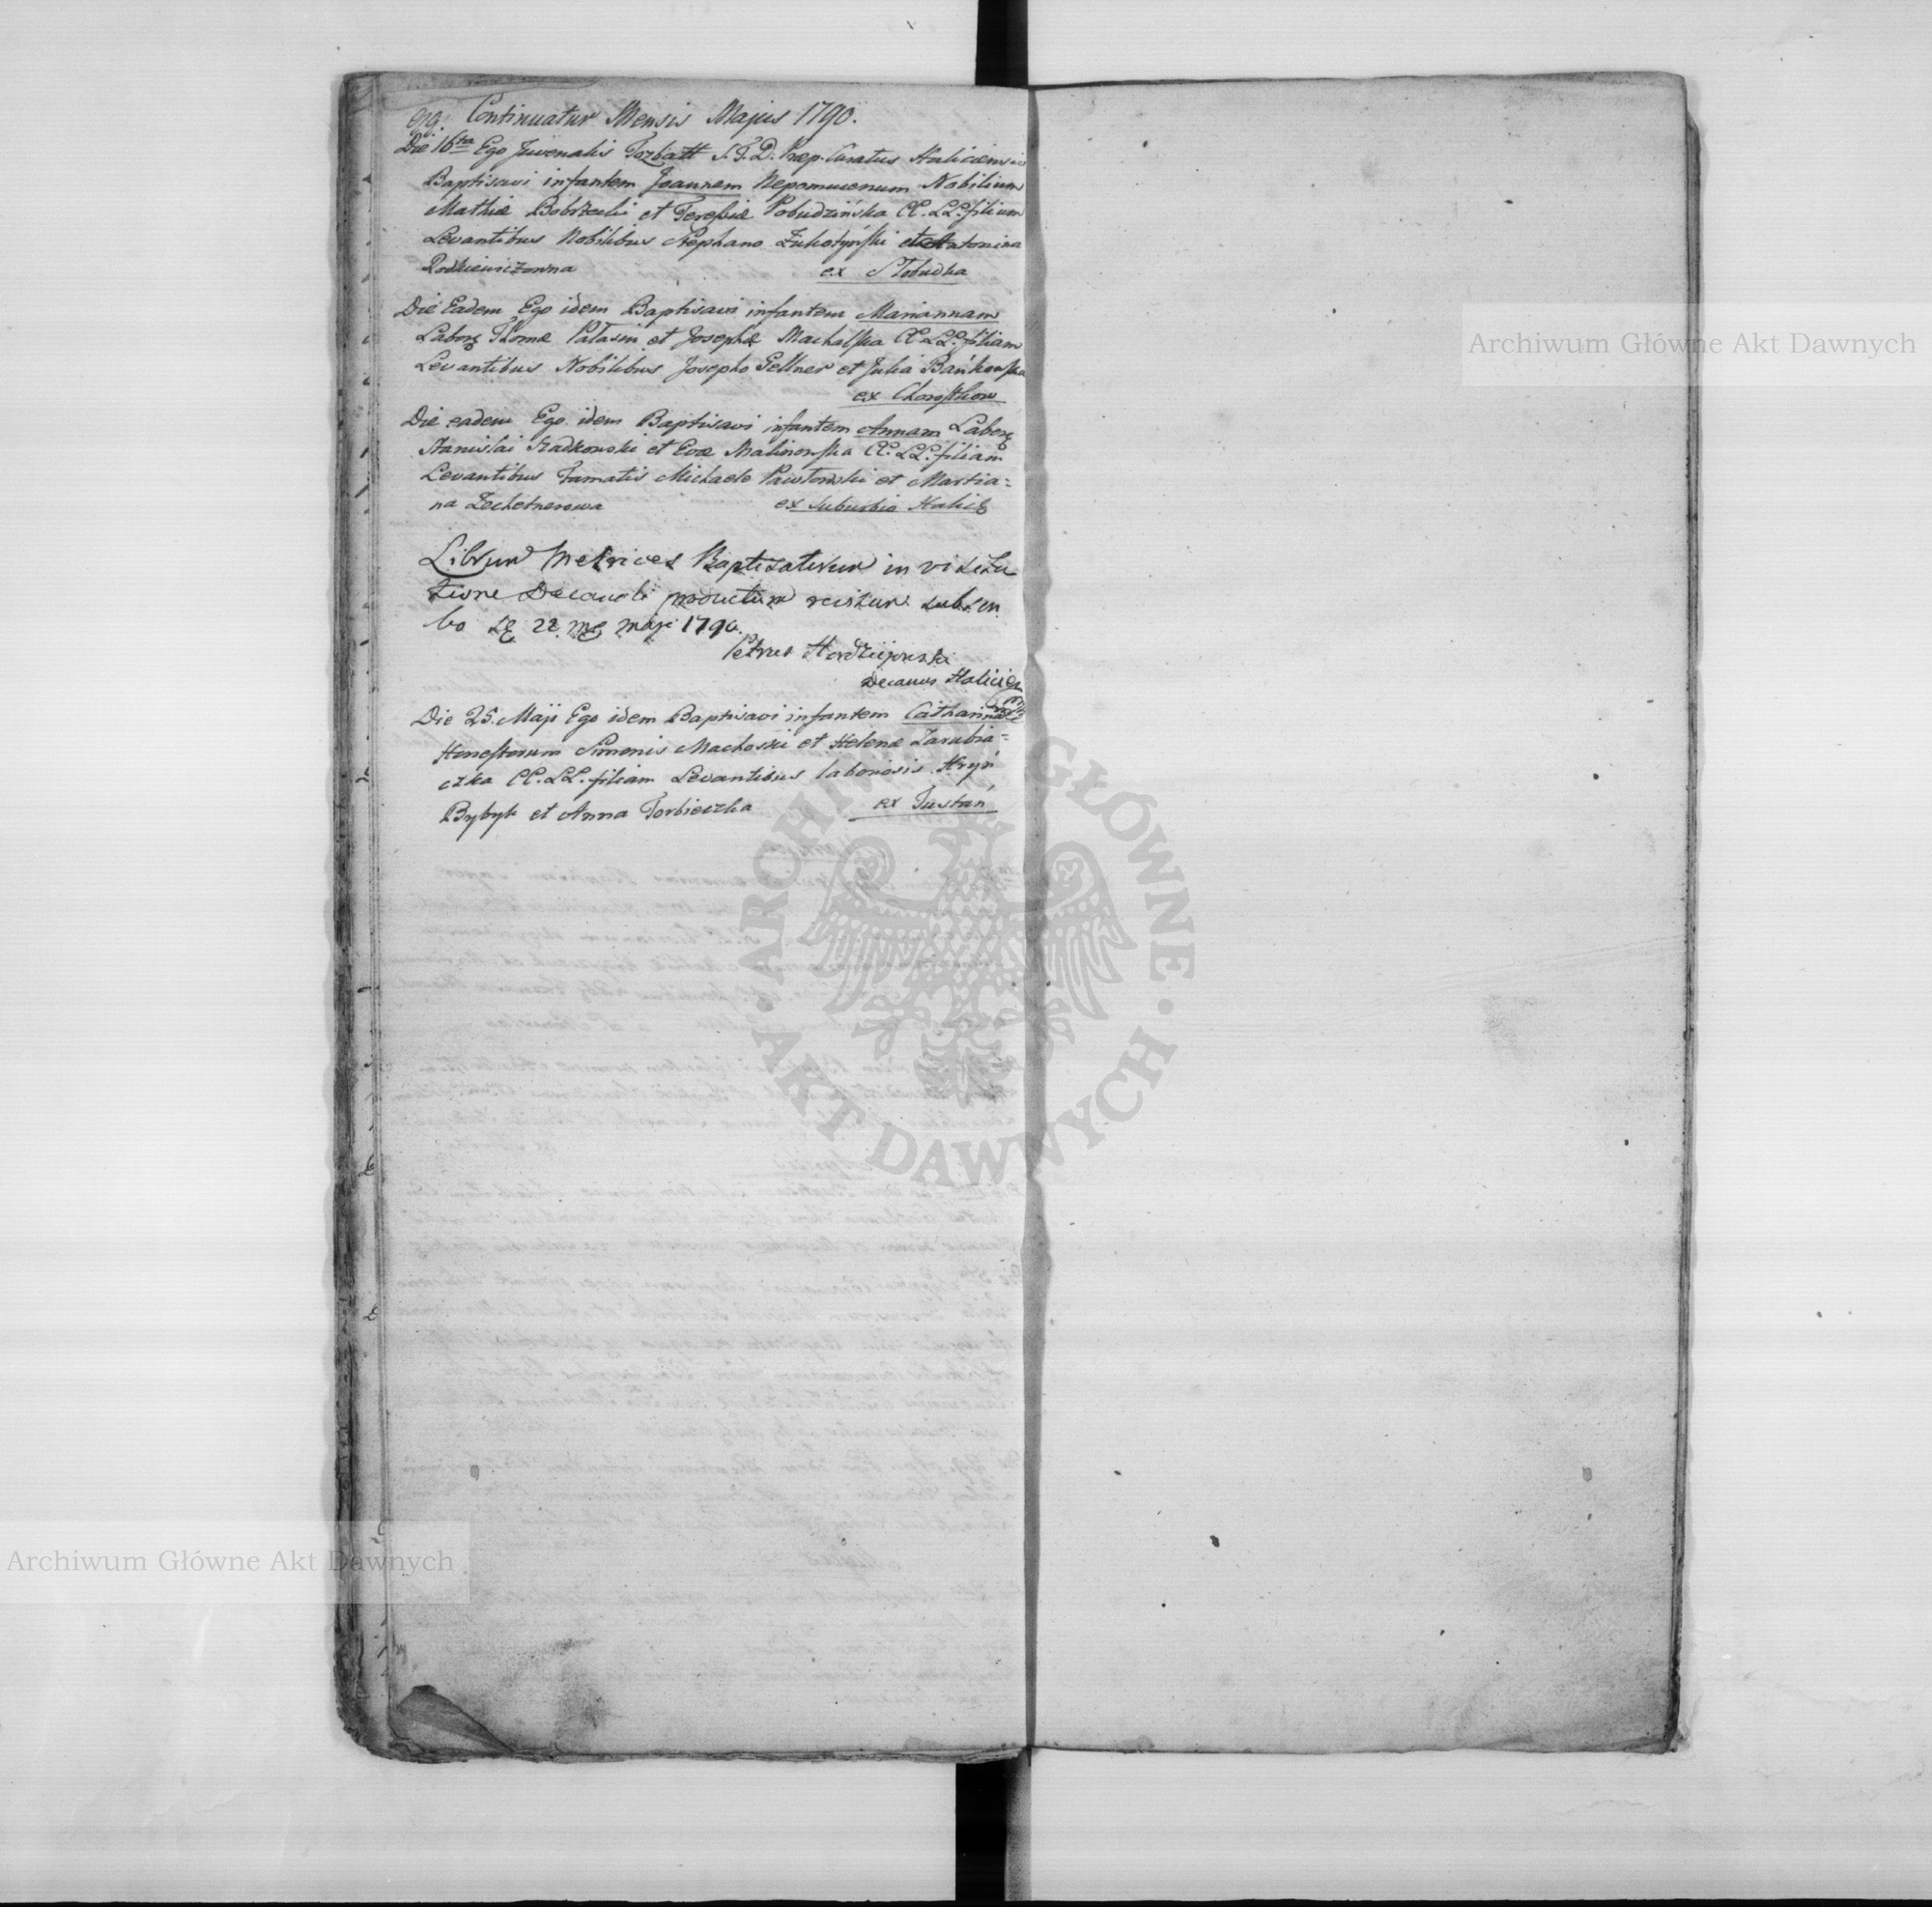 Continuatur Mensis Majus 1790.
Die 16ta Ego Juvenalis Tozbatt S.T.D. Præp. Curatus Haliciensis
Baptisavi infantem Joannem Nepomucenum Nobilium
Mathiæ Bobrzecki et Teressiæ Pobudzińska CC. LL. filium
Levantibus Nobilibus Stephano Żukotyński et Antonina
Rodkiewiczowna ex Słobudka
Die Eadem Ego idem Baptisavi infantem Mariannam
Labor Thomæ Patasin et Josephæ Machalska CC. LL. filiam
Levantibus Nobilibus Josepho Gellner et Julia Bańkowska
ex Chorostkow
Die eadem Ego idem Baptisavi infantem Annam Labor
Stanislai Hradkowski et Evæ Malinowska CC. LL. filiam
Levantibus Famatis Michaele Pawłowski et Martia=
na Lechetnerowa ex suburbio Halic
Librum Metrices Baptisatorum in visita
tione Decanali productum subscri
bo 22 Maji 1790.
Petrus
Decanus Halicien
Die 25. Maji Ego idem Baptisavi infantem Catharina
Honestorum Simonis Machoski et Helenæ Zarubia=
czka CC. LL. filiam Levantibus laboriosis Hryń
Bybyk et Anna Torbieczka ex Tustań
Archiwum Główne Akt Dawnych
Archiwum Główne Akt Dawnych
ARCHIWUM GŁÓWNE
AKT DAWNYCH